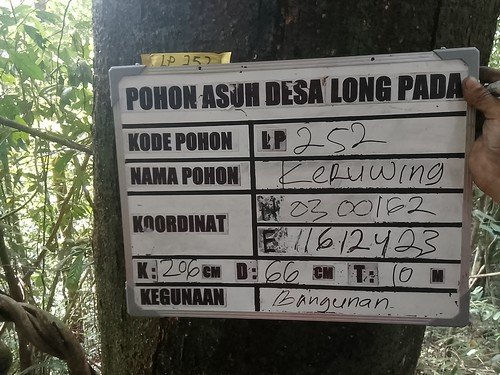 LP 252
POHON ASUH DESA LONG PADA
KODE POHON LP 252
NAMA POHON KERUWING
KOORDINAT N 03 00162
E 11612423
K: 206 CM D: 66 CM T: 10 M
KEGUNAAN Bangunan